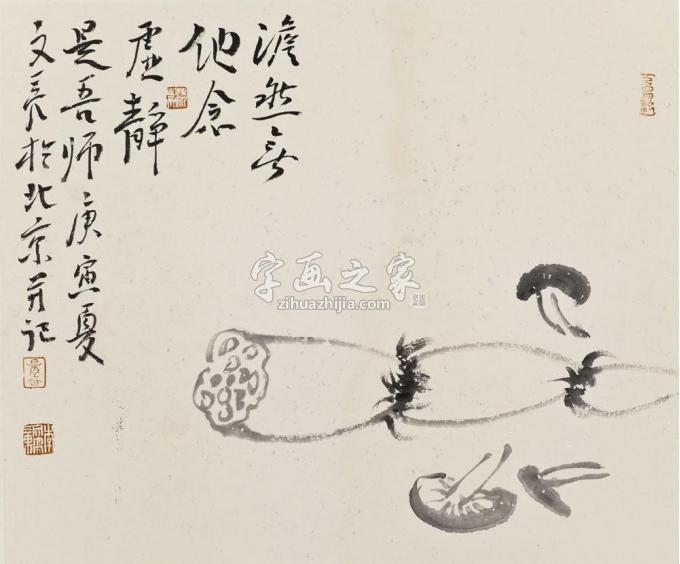 澹然無
他念
虚静
是吾师庚寅夏
文長於北京并记
字画之家
zihuazhijia.com